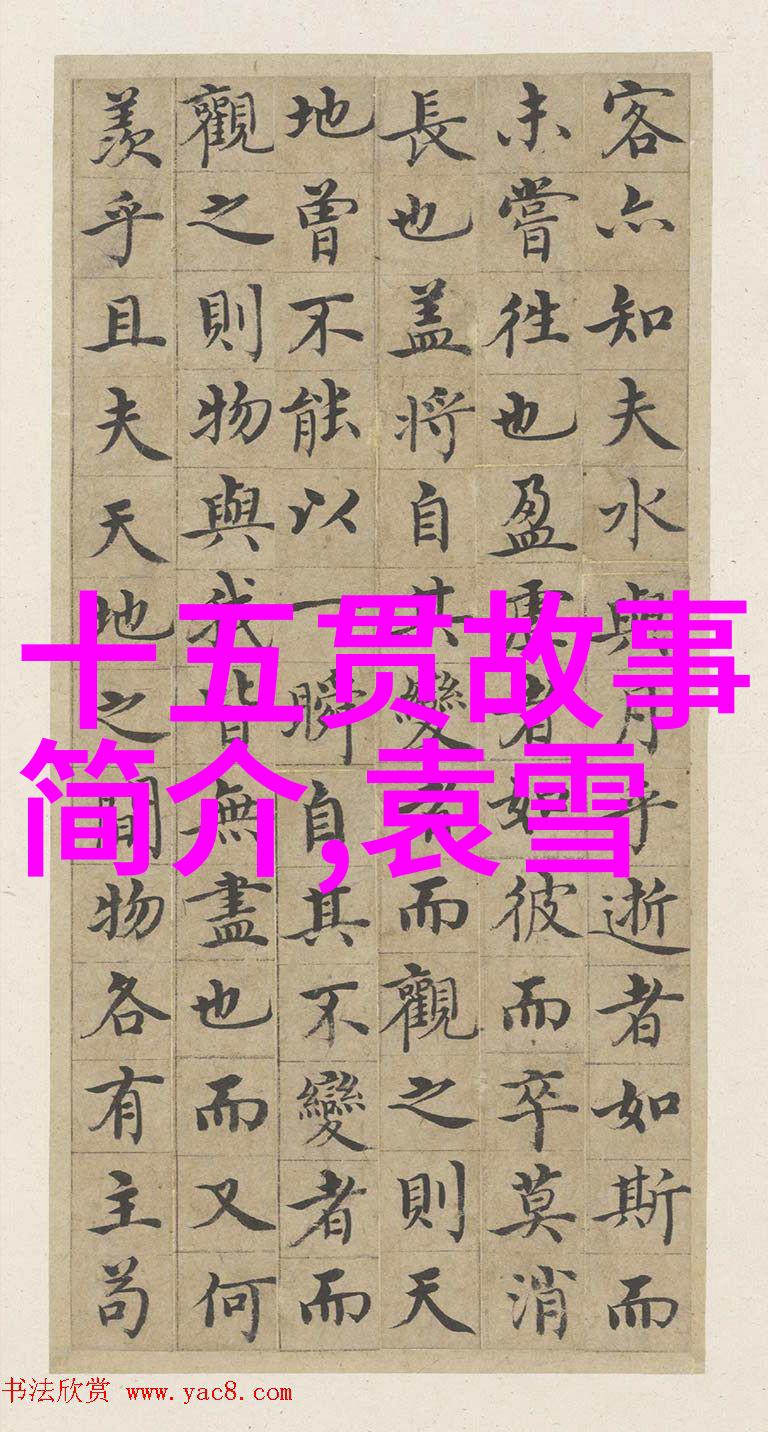 客亦知夫水與月乎逝者如斯而
未嘗往也盈虛者如彼而卒莫消
長也盖將自其變者而觀之則天
地曾不能以一瞬自其不變者而
觀之則物與我皆無盡也而又何
羨乎且夫天地之間物各有主苟
十五贯故事
简介,袁雪
书法欣赏 www.yac8.com